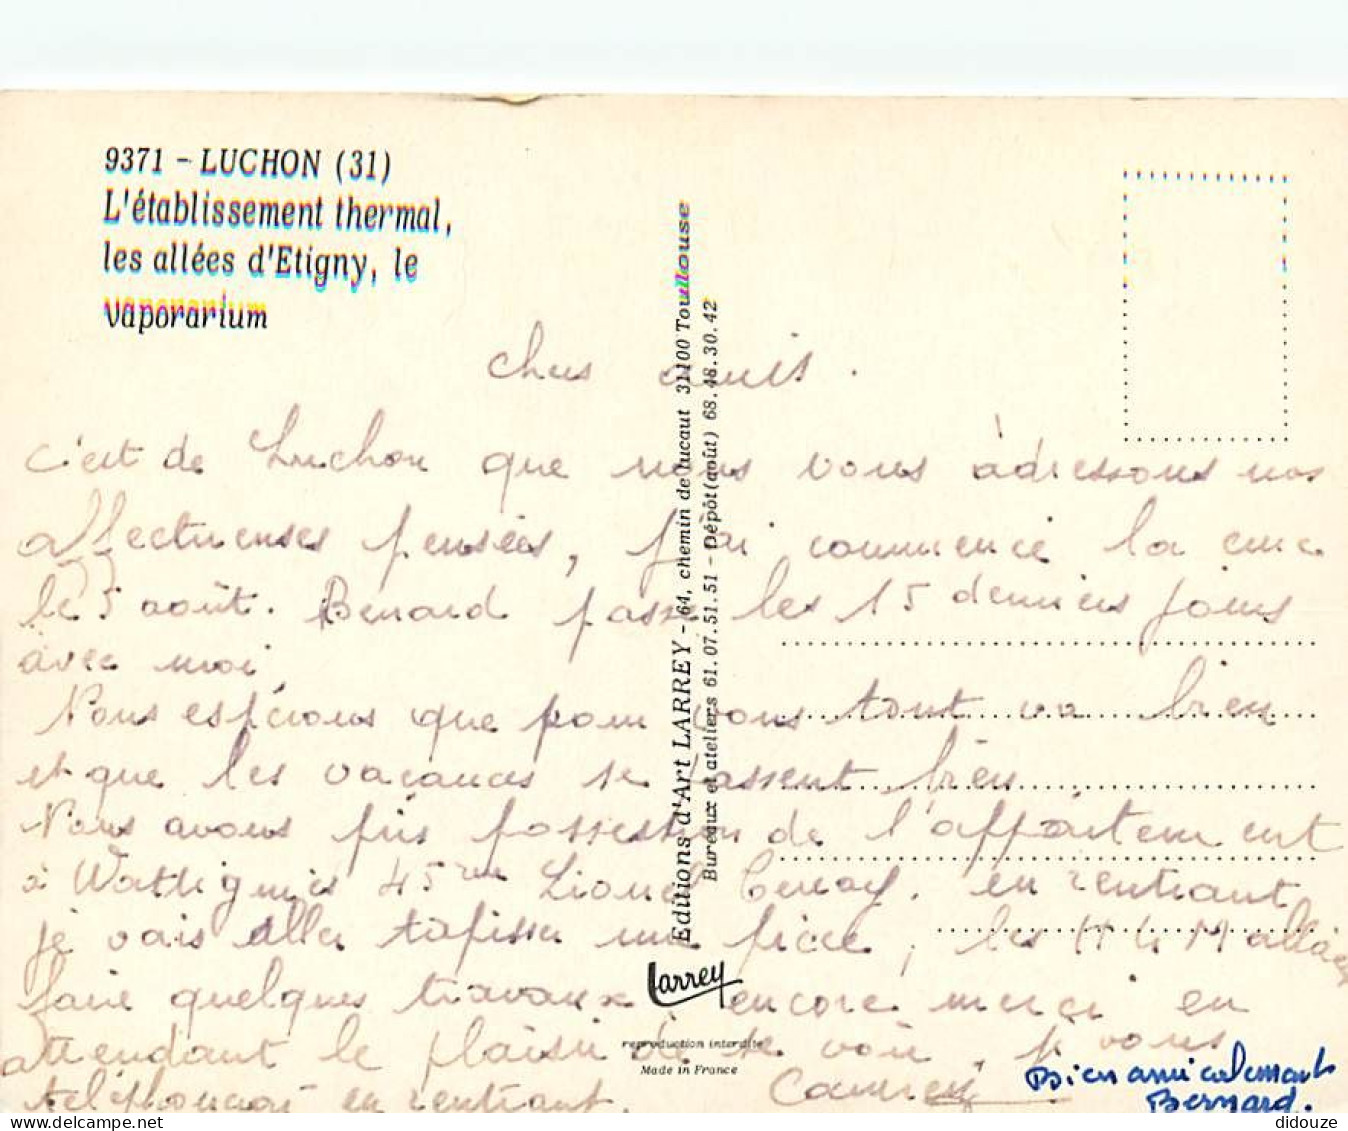 9371 - LUCHON (31)
L'établissement thermal,
les allées d'Etigny, le
vaporarium
Editions d'Art LARREY - 64, chemin de lucaut 31100 Toulouse
Bureaux et ateliers 61.07.51.51 - Dépôt (août) 68.48.30.42
chers amis.
c'est de Luchon que nous vous adressons nos
affectueuses pensées, j'ai commencé la cure
le 5 août. Bernard passe les 15 derniers jours
avec moi.
Nous espérons que pour vous tout va bien
et que les vacances se passent bien
Nous avons pris possession de l'appartement
à Wattignies 45 rue Lionel Terray. en rentrant
je vais aller tapisser une pièce, les
faire quelques travaux encore merci en
attendant le plaisir de se voir, je vous
téléphonerai en rentrant.
Bien amicalement
Bernard.
Larrey
reproduction interdite
Made in France
didouze
delcampe.net